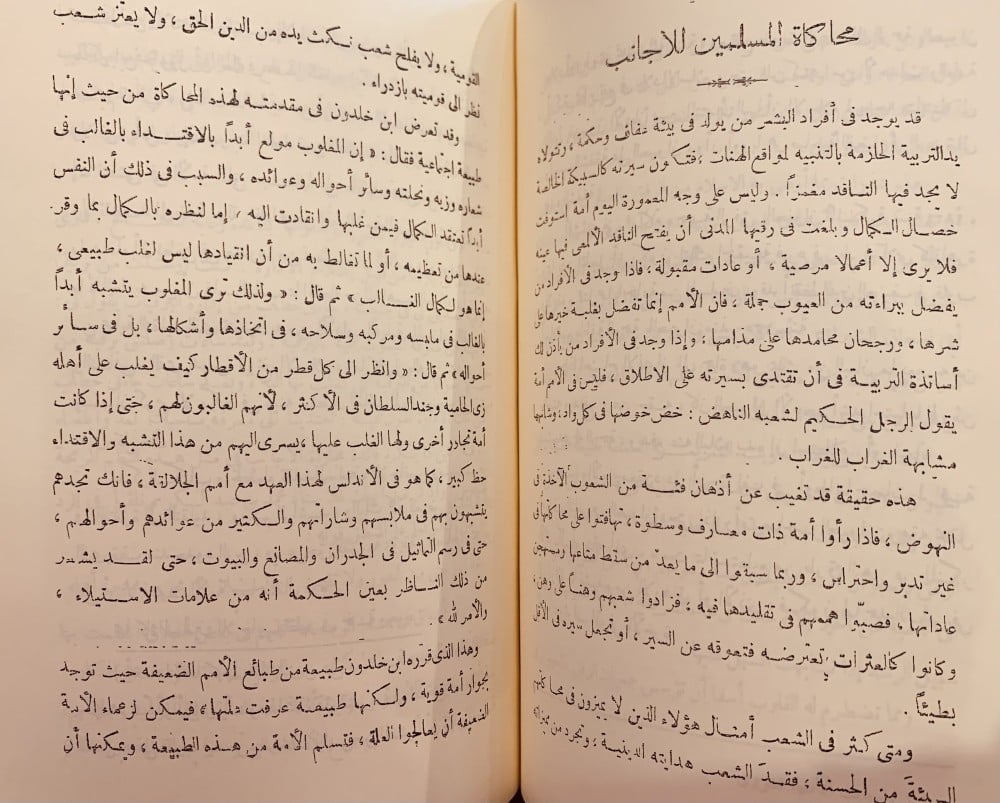 محاكاة المسلمين للأجانب
قد يوجد فى أفراد البشر من يولد فى بيئة عفاف وحكمة، وتتولاه
يد التربية الحازمة بالتنبيه لمواقع الهنات، فتكون سيرته كالسبيكة الخالصة
لا يجد فيها الناقد مغمزاً. وليس على وجه المعمورة اليوم أمة استوفت
خصال الكمال وبلغت فى رقيها المدنى أن يفتح الناقد الألمعى فيها عينه
فلا يرى إلا أعمالا مرضية، أو عادات مقبولة، فاذا وجد فى الأفراد من
يفضل ببراءته من العيوب جملة، فان الأمم إنما تفضل بغلبة خيرها على
شرها، ورجحان محامدها على مذامها، وإذا وجد فى الأفراد من يأذن لك
أساتذة التربية فى أن تقتدى بسيرته على الاطلاق، فليس فى الأمم أمة
يقول الرجل الحكيم لشعبه الناهض: خض خوضها فى كل واد، وشابهها
مشابهة الغراب للغراب.
هذه حقيقة قد تغيب عن أذهان فئة من الشعوب الآخذة فى
النهوض، فاذا رأوا أمة ذات معارف وسطوة، تهافتوا على محاكاتها فى
غير تدبر واحتراس، وربما سبقوا الى ما يعدّ من سقط متاعها ومستهجن
عاداتها، فصبّوا هممهم فى تقليدها فيه، فزادوا شعبهم وهناً على وهن،
وكانوا كالعثرات تعترضه فتعوقه عن السير، أو تجعل سيره فى الأقل
بطيئاً.
ومتى كثر فى الشعب أمثال هؤلاء الذين لا يميزون فى محاكاتهم
السيئة من الحسنة، فقد الشعب هدايته الدينية، وتجرد من مميزاته
القومية، ولا يفلح شعب نكث يده من الدين الحق، ولا يعتز شعب
نظر الى قوميته بازدراء.
وقد تعرض ابن خلدون فى مقدمته لهذه المحاكاة من حيث إنها
طبيعة اجتماعية فقال: «إن المغلوب مولع أبداً بالاقتداء بالغالب فى
شعاره وزيه ونحلته وسائر أحواله وعوائده، والسبب فى ذلك أن النفس
أبداً تعتقد الكمال فيمن غلبها وانقادت اليه، إما لنظره بالكمال بما وقر
عندها من تعظيمه، أو لما تغالط به من أن انقيادها ليس لغلب طبيعى،
إنما هو لكمال الغالب» ثم قال: «ولذلك ترى المغلوب يتشبه أبداً
بالغالب فى ملبسه ومركبه وسلاحه، فى اتخاذها وأشكالها، بل فى سائر
أحواله» ثم قال: «وانظر الى كل قطر من الأقطار كيف يغلب على أهله
زى الحامية وجند السلطان فى الأكثر، لأنهم الغالبون لهم، حتى إذا كانت
أمة تجاور أخرى ولها الغلب عليها، يسرى اليهم من هذا التشبه والاقتداء
حظ كبير، كما هو فى الأندلس لهذا العهد مع أمم الجلالقة، فانك تجدهم
يتشبهون بهم فى ملابسهم وشاراتهم والكثير من عوائدهم وأحوالهم،
حتى فى رسم التماثيل فى الجدران والمصانع والبيوت، حتى لقد يشعر
من ذلك الناظر بعين الحكمة أنه من علامات الاستيلاء،
والأمر لله».
وهذا الذى قرره ابن خلدون طبيعة من طبائع الأمم الضعيفة حيث توجد
بجوار أمة قوية، ولكنها طبيعة عرفت علتها، فيمكن لزعماء الأمة
الضعيفة أن يعالجوا العلة، فتسلم الأمة من هذه الطبيعة، ويمكنها أن